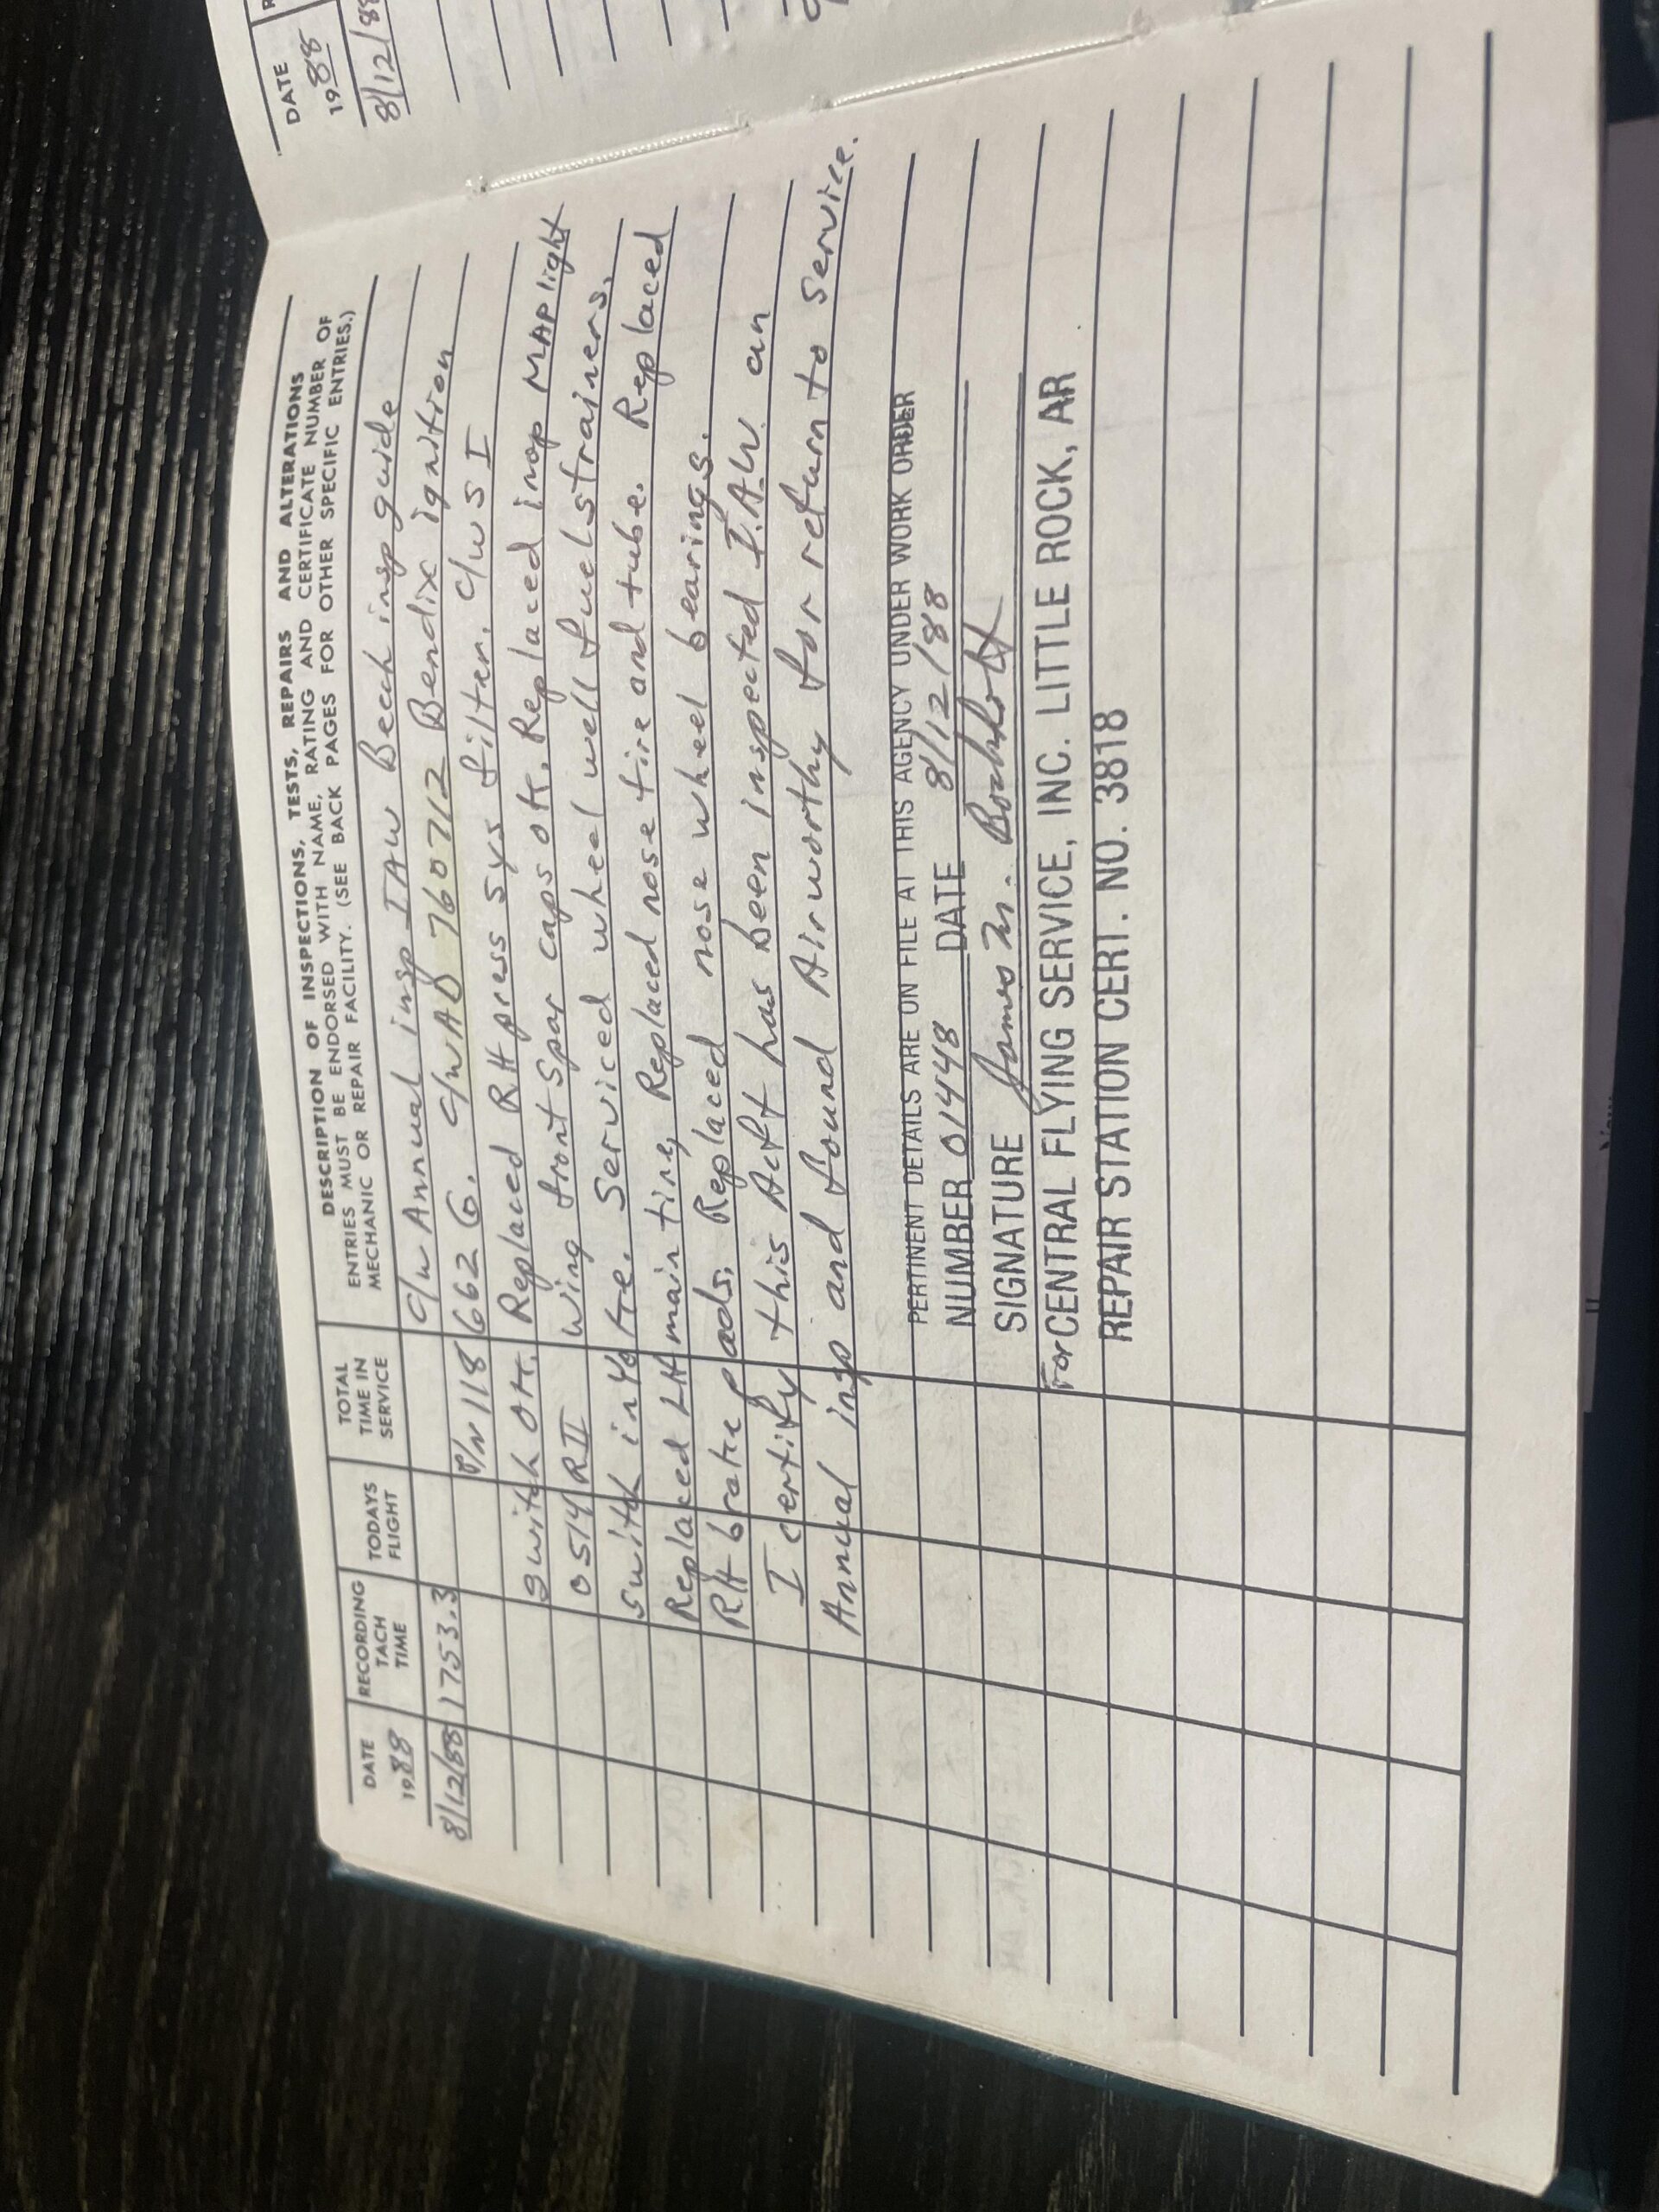 DESCRIPTION OF INSPECTIONS, TESTS, REPAIRS AND ALTERATIONS
ENTRIES MUST BE ENDORSED WITH NAME, RATING AND CERTIFICATE NUMBER OF
MECHANIC OR REPAIR FACILITY. (SEE BACK PAGES FOR OTHER SPECIFIC ENTRIES.)
DATE
1988
RECORDING
TACH
TIME
TODAYS
FLIGHT
TOTAL
TIME IN
SERVICE
8/12/88 1753.3 C/W Annual insp IAW Beech insp guide
P/N 118 6626G. C/W AD 760712 Bendix ignition
switch OK. Replaced RH press sys filter. C/W S I
0514 R II Wing front spar caps ok. Replaced inop MAP light
switch in Yoke. Serviced wheel well fuel strainers.
Replaced LH main tire, Replaced nose tire and tube. Replaced
RH brake pads. Replaced nose wheel bearings.
I certify this Acft has been inspected I.A.W. an
Annual insp and found Airworthy for return to service.
PERTINENT DETAILS ARE ON FILE AT THIS AGENCY UNDER WORK ORDER
NUMBER 01448 DATE 8/12/88
SIGNATURE James M.
For CENTRAL FLYING SERVICE, INC. LITTLE ROCK, AR
REPAIR STATION CERT. NO. 3818
DATE
1988
8/12/88